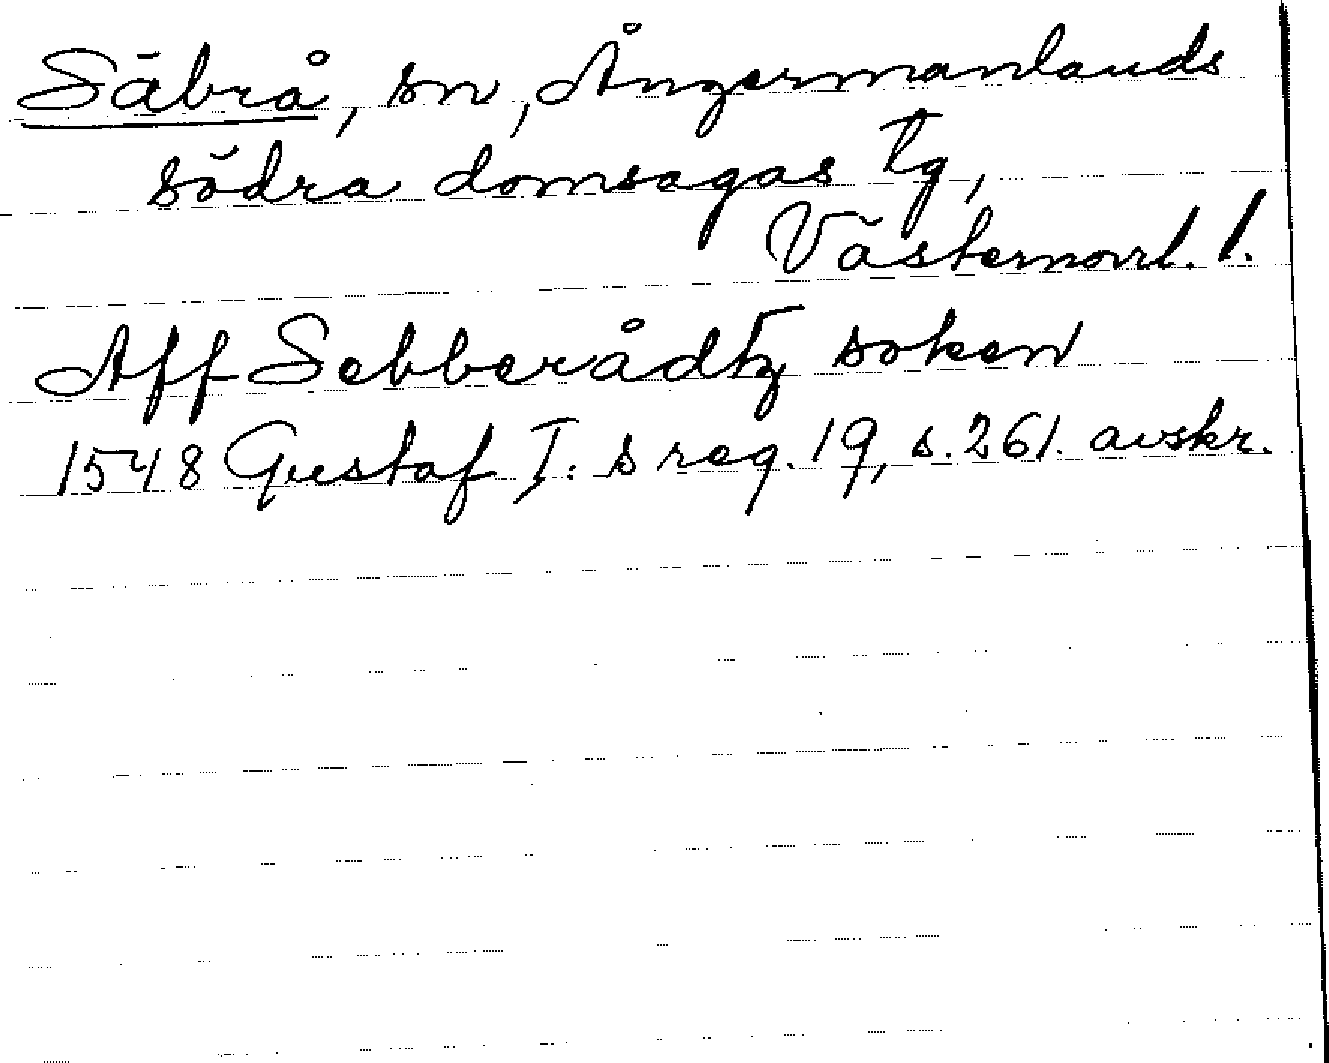 Säbrå, sn, Ångermanlands
södra domsagas tg,
Västernorrl. l.
Aff Sebberådtz soken
1548 Gustaf I:s reg. 19, s. 261. avskr.